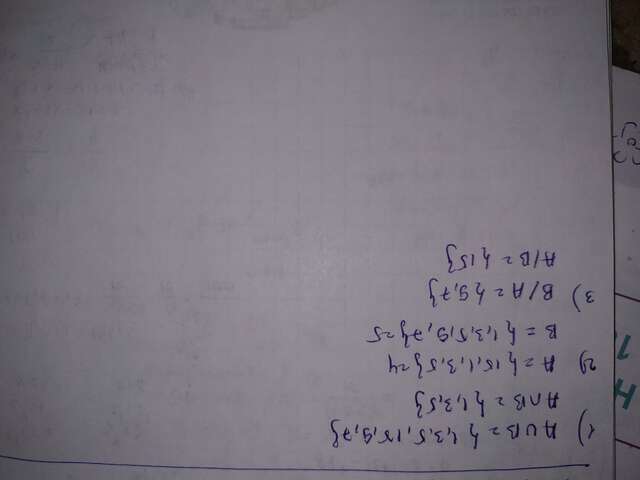 1) A∪B = {1,3,5,15,9,7}
A∩B = {1,3,5}
2) A = {15,1,3,5}=4
B = {1,3,5,9,7}=5
3) B/A = {9,7}
A/B = {15}